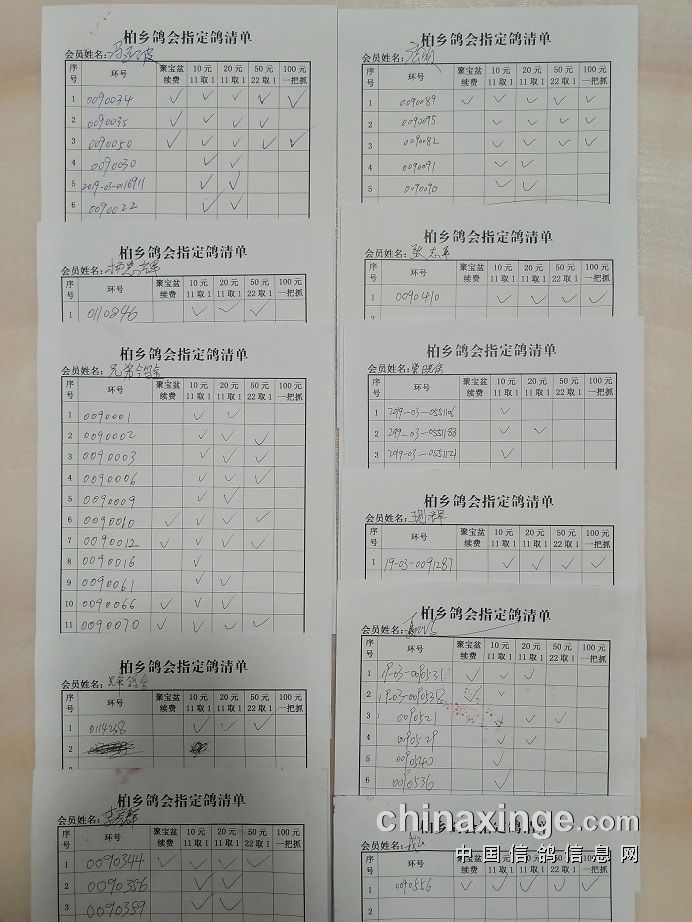 柏乡鸽会指定鸽清单
会员姓名:
序号 环号 聚宝盆续费 10元11取1 20元11取1 50元22取1 100元一把抓
1 0090034 ✓ ✓ ✓ ✓ ✓
2 0090035 ✓ ✓ ✓ ✓
3 0090050 ✓ ✓ ✓ ✓ ✓
4 0090030 ✓ ✓
5 2019-03-0116911 ✓ ✓
6 0090022 ✓ ✓
柏乡鸽会指定鸽清单
会员姓名:
序号 环号 聚宝盆续费 10元11取1 20元11取1 50元22取1 100元一把抓
1 0110846 ✓ ✓ ✓
柏乡鸽会指定鸽清单
会员姓名:兄弟鸽舍
序号 环号 聚宝盆续费 10元11取1 20元11取1 50元22取1 100元一把抓
1 0090001 ✓ ✓
2 0090002 ✓ ✓ ✓
3 0090003 ✓ ✓ ✓
4 0090006 ✓ ✓ ✓
5 0090009 ✓ ✓
6 0090010 ✓ ✓ ✓ ✓
7 0090012 ✓ ✓ ✓ ✓
8 0090016 ✓
9 0090061 ✓ ✓
10 0090066 ✓ ✓ ✓
11 0090070 ✓ ✓ ✓ ✓
柏乡鸽会指定鸽清单
会员姓名:兄弟鸽舍
序号 环号 聚宝盆续费 10元11取1 20元11取1 50元22取1 100元一把抓
1 0114238 ✓ ✓ ✓
2
柏乡鸽会指定鸽清单
会员姓名:
序号 环号 聚宝盆续费 10元11取1 20元11取1 50元22取1 100元一把抓
1 0090344 ✓ ✓ ✓ ✓
2 0090356 ✓ ✓
3 0090359 ✓ ✓
柏乡鸽会指定鸽清单
会员姓名:
序号 环号 聚宝盆续费 10元11取1 20元11取1 50元22取1 100元一把抓
1 0090089 ✓ ✓ ✓ ✓ ✓
2 0090095 ✓ ✓ ✓ ✓
3 0090082 ✓ ✓ ✓ ✓
4 0090091 ✓ ✓
5 0090090 ✓ ✓
柏乡鸽会指定鸽清单
会员姓名:张志军
序号 环号 聚宝盆续费 10元11取1 20元11取1 50元22取1 100元一把抓
1 0090410 ✓ ✓ ✓ ✓
柏乡鸽会指定鸽清单
会员姓名:
序号 环号 聚宝盆续费 10元11取1 20元11取1 50元22取1 100元一把抓
1 2019-03-0551106 ✓
2 2019-03-0551188 ✓ ✓
3 2019-03-0551121 ✓
柏乡鸽会指定鸽清单
会员姓名:
序号 环号 聚宝盆续费 10元11取1 20元11取1 50元22取1 100元一把抓
1 19-03-0091287 ✓ ✓ ✓ ✓
柏乡鸽会指定鸽清单
会员姓名:
序号 环号 聚宝盆续费 10元11取1 20元11取1 50元22取1 100元一把抓
1 19-03-0090531 ✓ ✓ ✓
2 19-03-0090538 ✓ ✓
3 0090521 ✓ ✓ ✓
4 0090529 ✓ ✓
5 0090540 ✓
6 0090536 ✓
柏乡鸽会指定鸽清单
会员姓名:
序号 环号 聚宝盆续费 10元11取1 20元11取1 50元22取1 100元一把抓
1 0090556 ✓ ✓ ✓ ✓ ✓
2
chinaxinge.com
中国信鸽信息网